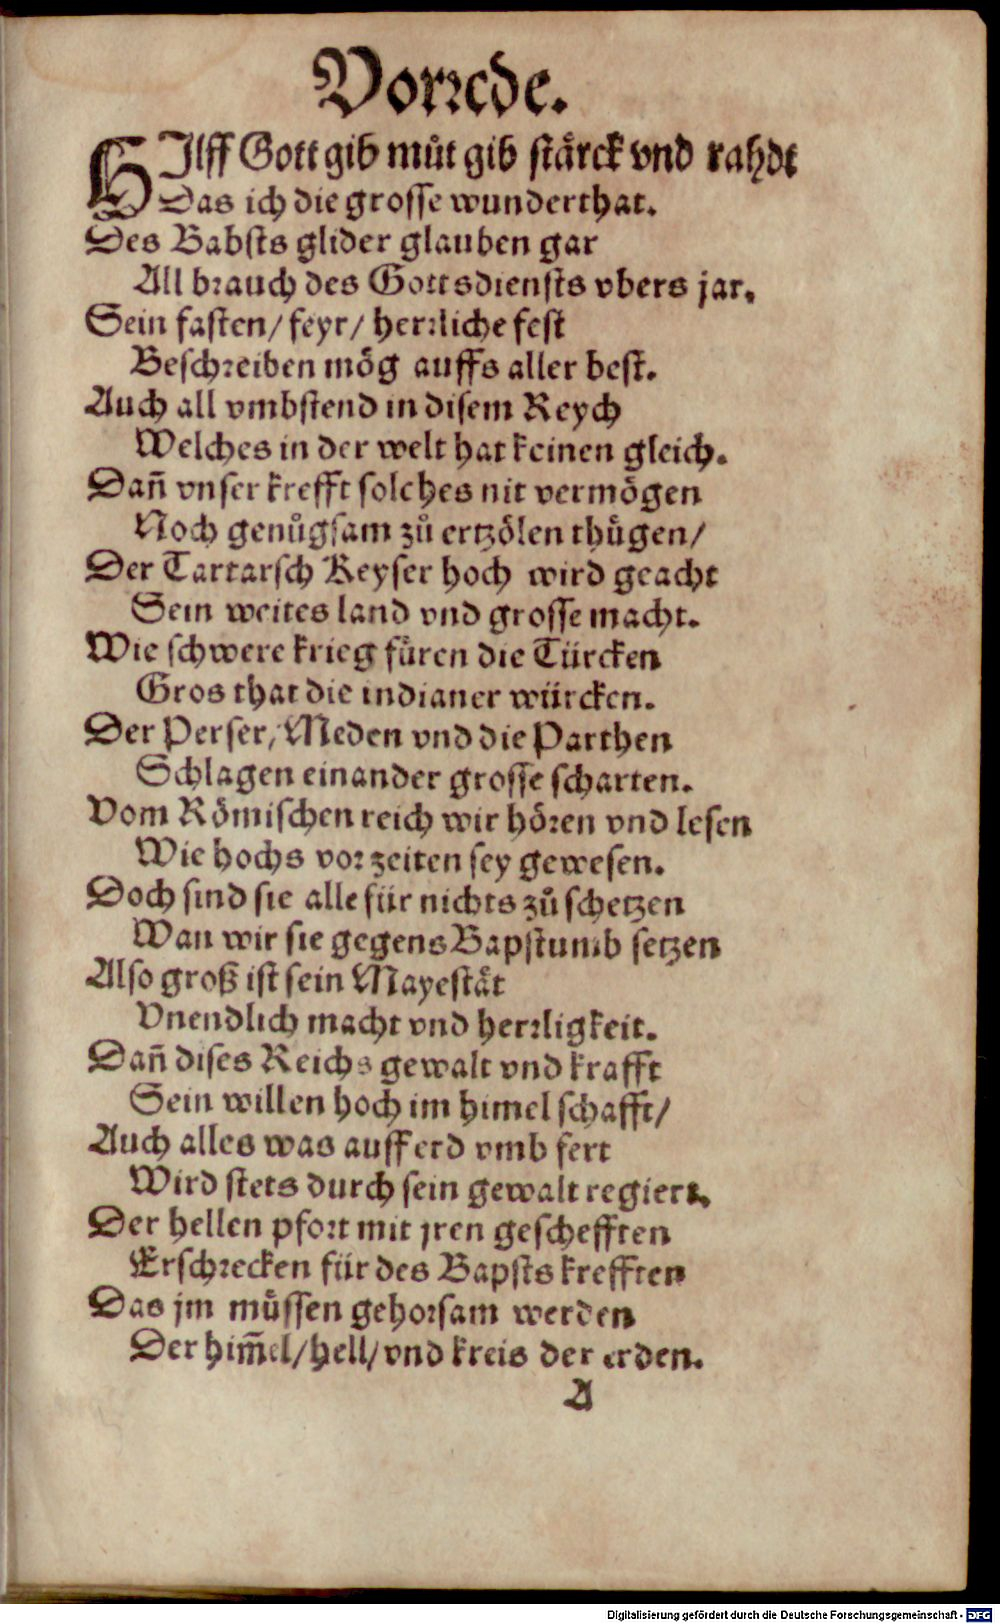 Vorrede.
HIlff Gott gib můt gib stärck vnd rahdt
Das ich die grosse wunderthat.
Des Babsts glider glauben gar
All brauch des Gottsdiensts vbers jar.
Sein fasten/ feyr/ herrliche fest
Beschreiben mög auffs aller best.
Auch all vmbstend in disem Reych
Welches in der welt hat keinen gleich.
Dañ vnser krefft solches nit vermögen
Noch genůgsam zů ertzölen thůgen/
Der Tartarsch Keyser hoch wird geacht
Sein weites land vnd grosse macht.
Wie schwere krieg füren die Türcken
Gros that die indianer würcken.
Der Perser/ Meden vnd die Parthen
Schlagen einander grosse scharten.
Vom Römischen reich wir hören vnd lesen
Wie hochs vor zeiten sey gewesen.
Doch sind sie alle für nichts zů schetzen
Wan wir sie gegens Bapstumb setzen
Also groß ist sein Mayestät
Vnendlich macht vnd herrligkeit.
Dañ dises Reichs gewalt vnd krafft
Sein willen hoch im himel schafft/
Auch alles was auff erd vmb fert
Wird stets durch sein gewalt regiert.
Der hellen pfort mit jren geschefften
Erschrecken für des Bapsts krefften
Das jm müssen gehorsam werden
Der him̃el/ hell/ vnd kreis der erden.
A
Digitalisierung gefördert durch die Deutsche Forschungsgemeinschaft - DFG